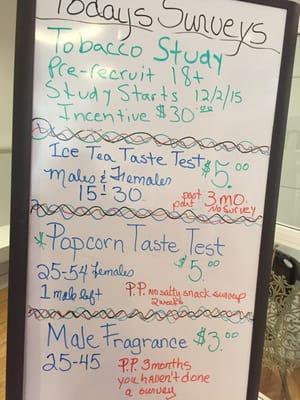 Todays Surveys
Tobacco Study
Pre-recruit 18+
Study Starts 12/2/15
Incentive $30.00
Ice Tea Taste Test $5.00
Males & Females
15-30
past part 3 mo.
No Survey
*Popcorn Taste Test
$5.00
25-54 females
1 male left
P.P. no salty snack survey
2 weeks
Male Fragrance $3.00
25-45
P.P. 3 months
you haven't done
a survey